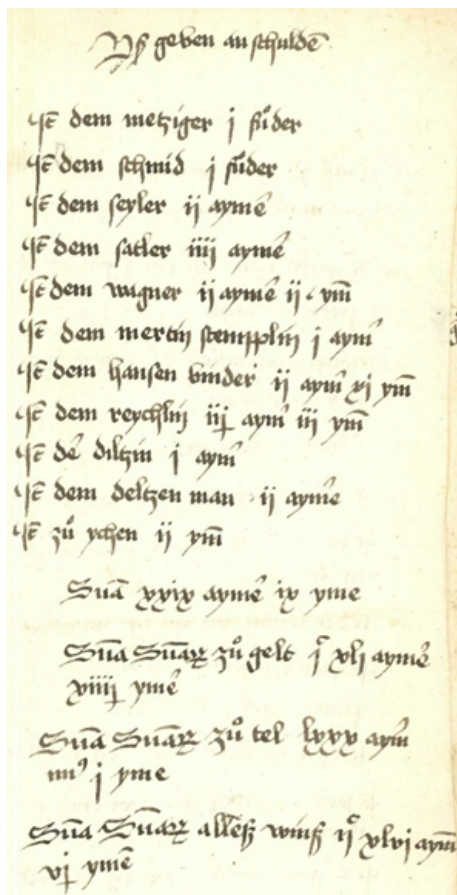 Vß geben an schuldē
Itē dem metziger j fůder
Itē dem schmid j fůder
Itē dem seyler ii aymē
Itē dem satler iiij aymē
Itē dem wagner ii aymē ii ym̄
Itē dem mertin stempplin j aym̄
Itē dem hansen binder ii aym̄ xj ym̄
Itē dem reychlin iij aym̄ iij ym̄
Itē dē diltzin j aym̄
Itē dem deltzen man ii ayme
Itē zů ychen ii ym̄
Sūa xxix aymē ix yme
Sūa Sūarꝝ zů gelt jᶜ xlj aymē
xiiij ymē
Sūa Sūarꝝ zů tel lxxx aym̄
j yme
Sūa Sūarꝝ alleß winß ijᶜ xlvi aym̄
vj ymē